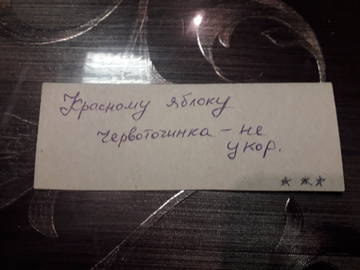 Красному яблоку
червоточинка – не
укор.
***